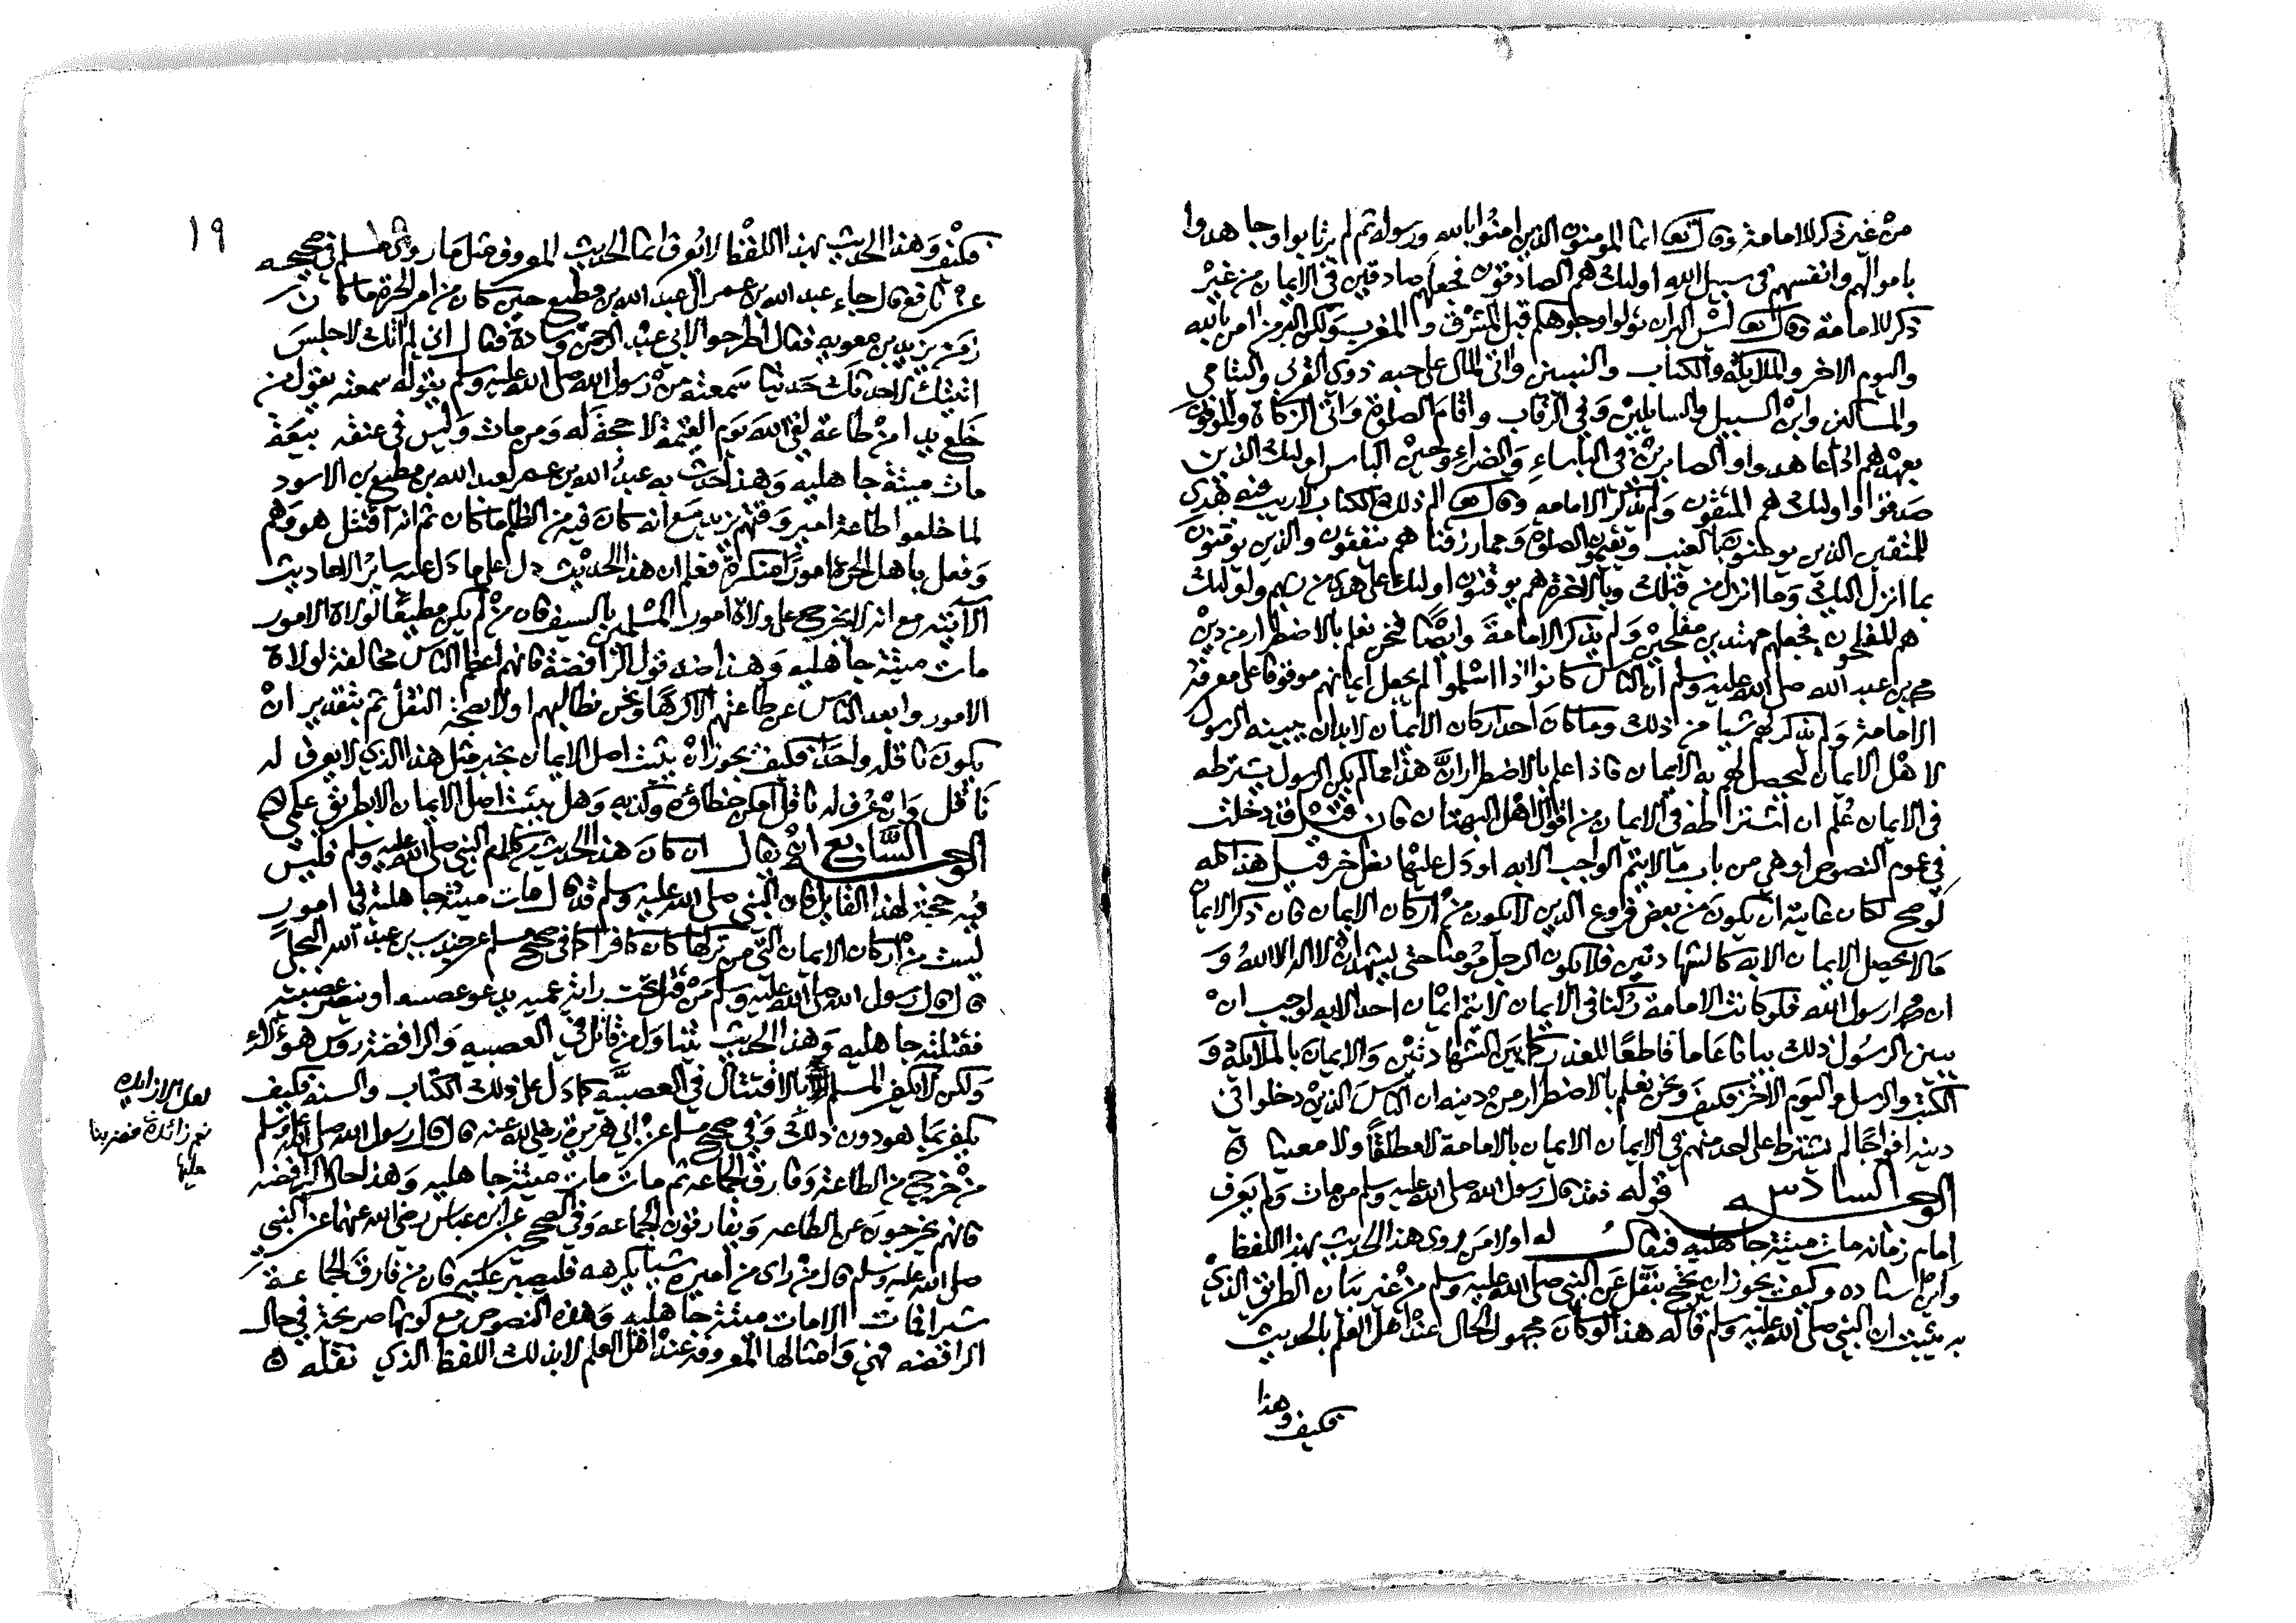 من غير ذكر للامامة وقال تعالى انما المومنون الذين امنوا بالله ورسوله ثم لم يرتابوا وجاهدوا
باموالهم وانفسهم في سبيل الله اوليك هم الصادقون فجعلهم صادقين في الايمان من غير
ذكر للامامة وقال تعالى ليس البر ان تولوا وجوهكم قبل المشرق والمغرب ولكن البر من امن بالله
واليوم الاخر والملايكة والكتاب والنبيين واتى المال على حبه ذوي القربى واليتامى
والمساكين وابن السبيل والسايلين وفي الرقاب واقام الصلوة واتى الزكاة والموفون
بعهدهم اذا عاهدوا والصابرين في الباساء والضراء وحين الباس اوليك الذين
صدقوا واوليك هم المتقون ولم يذكر الامامه وقال تعالى الم ذلك الكتاب لاريب فيه هدى
للمتقين الذين يومنون بالغيب ويقيمون الصلوة ومما رزقناهم ينفقون والذين يومنون
بما انزل اليك وما انزل من قبلك وبالاخرة هم يوقنون اوليك على هدى من ربهم واوليك
هم المفلحون فجعلهم مهتدين مفلحين ولم يذكر الامامة وايضا فنحن نعلم بالاضطرار من دين
محمد بن عبد الله صلى الله عليه وسلم ان الناس كانوا اذا اسلموا لم يجعل ايمانهم موقوفا على معرفة
الامامة ولم يذكر لهم شيا من ذلك وما كان احد اركان الايمان لابد ان يبينه الرسول
لاهل الايمان ليحصل لهم به الايمان فاذا علم بالاضطرار ان هذا مما لم يكن الرسول يشترطه
في الايمان علم ان اشتراطه في الايمان من اقوال اهل البهتان فان قيل قد دخلت
في عموم النصوص او هي من باب ما لا يتم الواجب الا به او دل عليها نص اخر قيل هذا كله
لو صح لكان غايته ان يكون من بعض فروع الدين لا يكون من اركان الايمان فان ذكر الايمان
ما لا يحصل الايمان الا به كالشهادتين فلا يكون الرجل مومنا حتى يشهد ان لا اله الا الله و
ان محمدا رسول الله فلو كانت الامامة ركنا في الايمان لا يتم ايمان احد الا به لوجب ان
يبين الرسول ذلك بيانا عاما قاطعا للعذر كما بين الشهادتين والايمان بالملايكة و
الكتب والرسل واليوم الاخر فكيف ونحن نعلم بالاضطرار من دينه ان الناس الذين دخلوا في
دينه افواجا لم يشترط على احد منهم في الايمان الايمان بالامامة لا مطلقا ولا معينا ه
الوجه السادس قوله فقد قال رسول الله صلى الله عليه وسلم من مات ولم يعرف
امام زمانه مات ميتة جاهليه فيقال له اولا من روى هذا الحديث بهذا اللفظ
واين اسناده وكيف يجوز ان يحتج بنقل عن النبي صلى الله عليه وسلم من غير بيان الطريق الذي
به يثبت ان النبي صلى الله عليه وسلم قاله هذا لو كان مجهول الحال عند اهل العلم بالحديث
فكيف وهذا
١٩
فكيف وهذا الحديث بهذا اللفظ لا يعرف انما الحديث المعروف مثل ما روى مسلم في صحيحه
عن نافع قال جاء عبد الله بن عمر الى عبد الله بن مطيع حين كان من امر الحرة ما كان
زمن يزيد بن معويه فقال اطرحوا لابي عبد الرحمن وسادة فقال اني لم اتك لاجلس
اتيتك لاحدثك حديثا سمعته من رسول الله صلى الله عليه وسلم يقوله سمعته يقول من
خلع يدا من طاعة لقي الله يوم القيمة لا حجة له ومن مات وليس في عنقه بيعة
مات ميتة جاهليه وهذا حدث به عبد الله بن عمر لعبد الله بن مطيع بن الاسود
لما خلعوا طاعة امير وقتهم يزيد مع انه كان فيه من الظلم ما كان ثم انه اقتتل هو وهم
وفعل باهل الحرة امورا منكرة فعلم ان هذا الحديث دل على ما دل عليه ساير الاحاديث
الاتيه مع انه لا يخرج على ولاة امور المسلمين بالسيف فان من لم يكن مطيعا لولاة الامور
مات ميتة جاهليه وهذا ضد قول الرافضة فانهم اعظم الناس مخالفة لولاة
الامور وابعد الناس عن طاعتهم الا كرها ونحن نطالبهم اولا بصحة النقل ثم بتقدير ان
يكون ناقله واحدا فكيف يجوز ان يثبت اصل الايمان بخبر مثل هذا الذي لا يعرف له
ناقل وان عرف له ناقل امكن خطاؤه وكذبه وهل يثبت اصل الايمان الا بطريق علمي ه
الوجه السابع ان يقال ان كان هذا الحديث من كلام النبي صلى الله عليه وسلم فليس
فيه حجة لهذا القايل فان النبي صلى الله عليه وسلم قد قال مات ميتة جاهلية في امور
ليست من اركان الايمان التي من تركها كان كافرا كما في صحيح مسلم عن جندب بن عبد الله البجلي
قال قال رسول الله صلى الله عليه وسلم من قتل تحت راية عميه يدعو عصبيه او ينصر عصبيته
فقتلته جاهليه وهذا الحديث يتناول من قاتل في العصبيه والرافضة روس هؤلاء
ولكن لا يكفر المسلم الا بالاقتتال في العصبية كما دل على ذلك الكتاب والسنه فكيف
يكفر بما هو دون ذلك وفي صحيح مسلم عن ابي هريرة رضي الله عنه قال قال رسول الله صلى الله عليه وسلم
من خرج من الطاعة وفارق الجماعه ثم مات مات ميتة جاهليه وهذا حال الرافضه
فانهم يخرجون عن الطاعه ويفارقون الجماعه وفي الصحيح عن ابن عباس رضي الله عنهما عن النبي
صلى الله عليه وسلم قال من راى من اميره شيا يكرهه فليصبر عليه فان من فارق الجماعة
شبرا فمات الا مات ميتة جاهليه وهذه النصوص مع كونها صريحة في حال
الرافضه فهي وامثالها المعروفه عند اهل العلم لا بذلك اللفظ الذي نقله ه
لعل الا زايده
نعم زائدة فضربنا
عليها